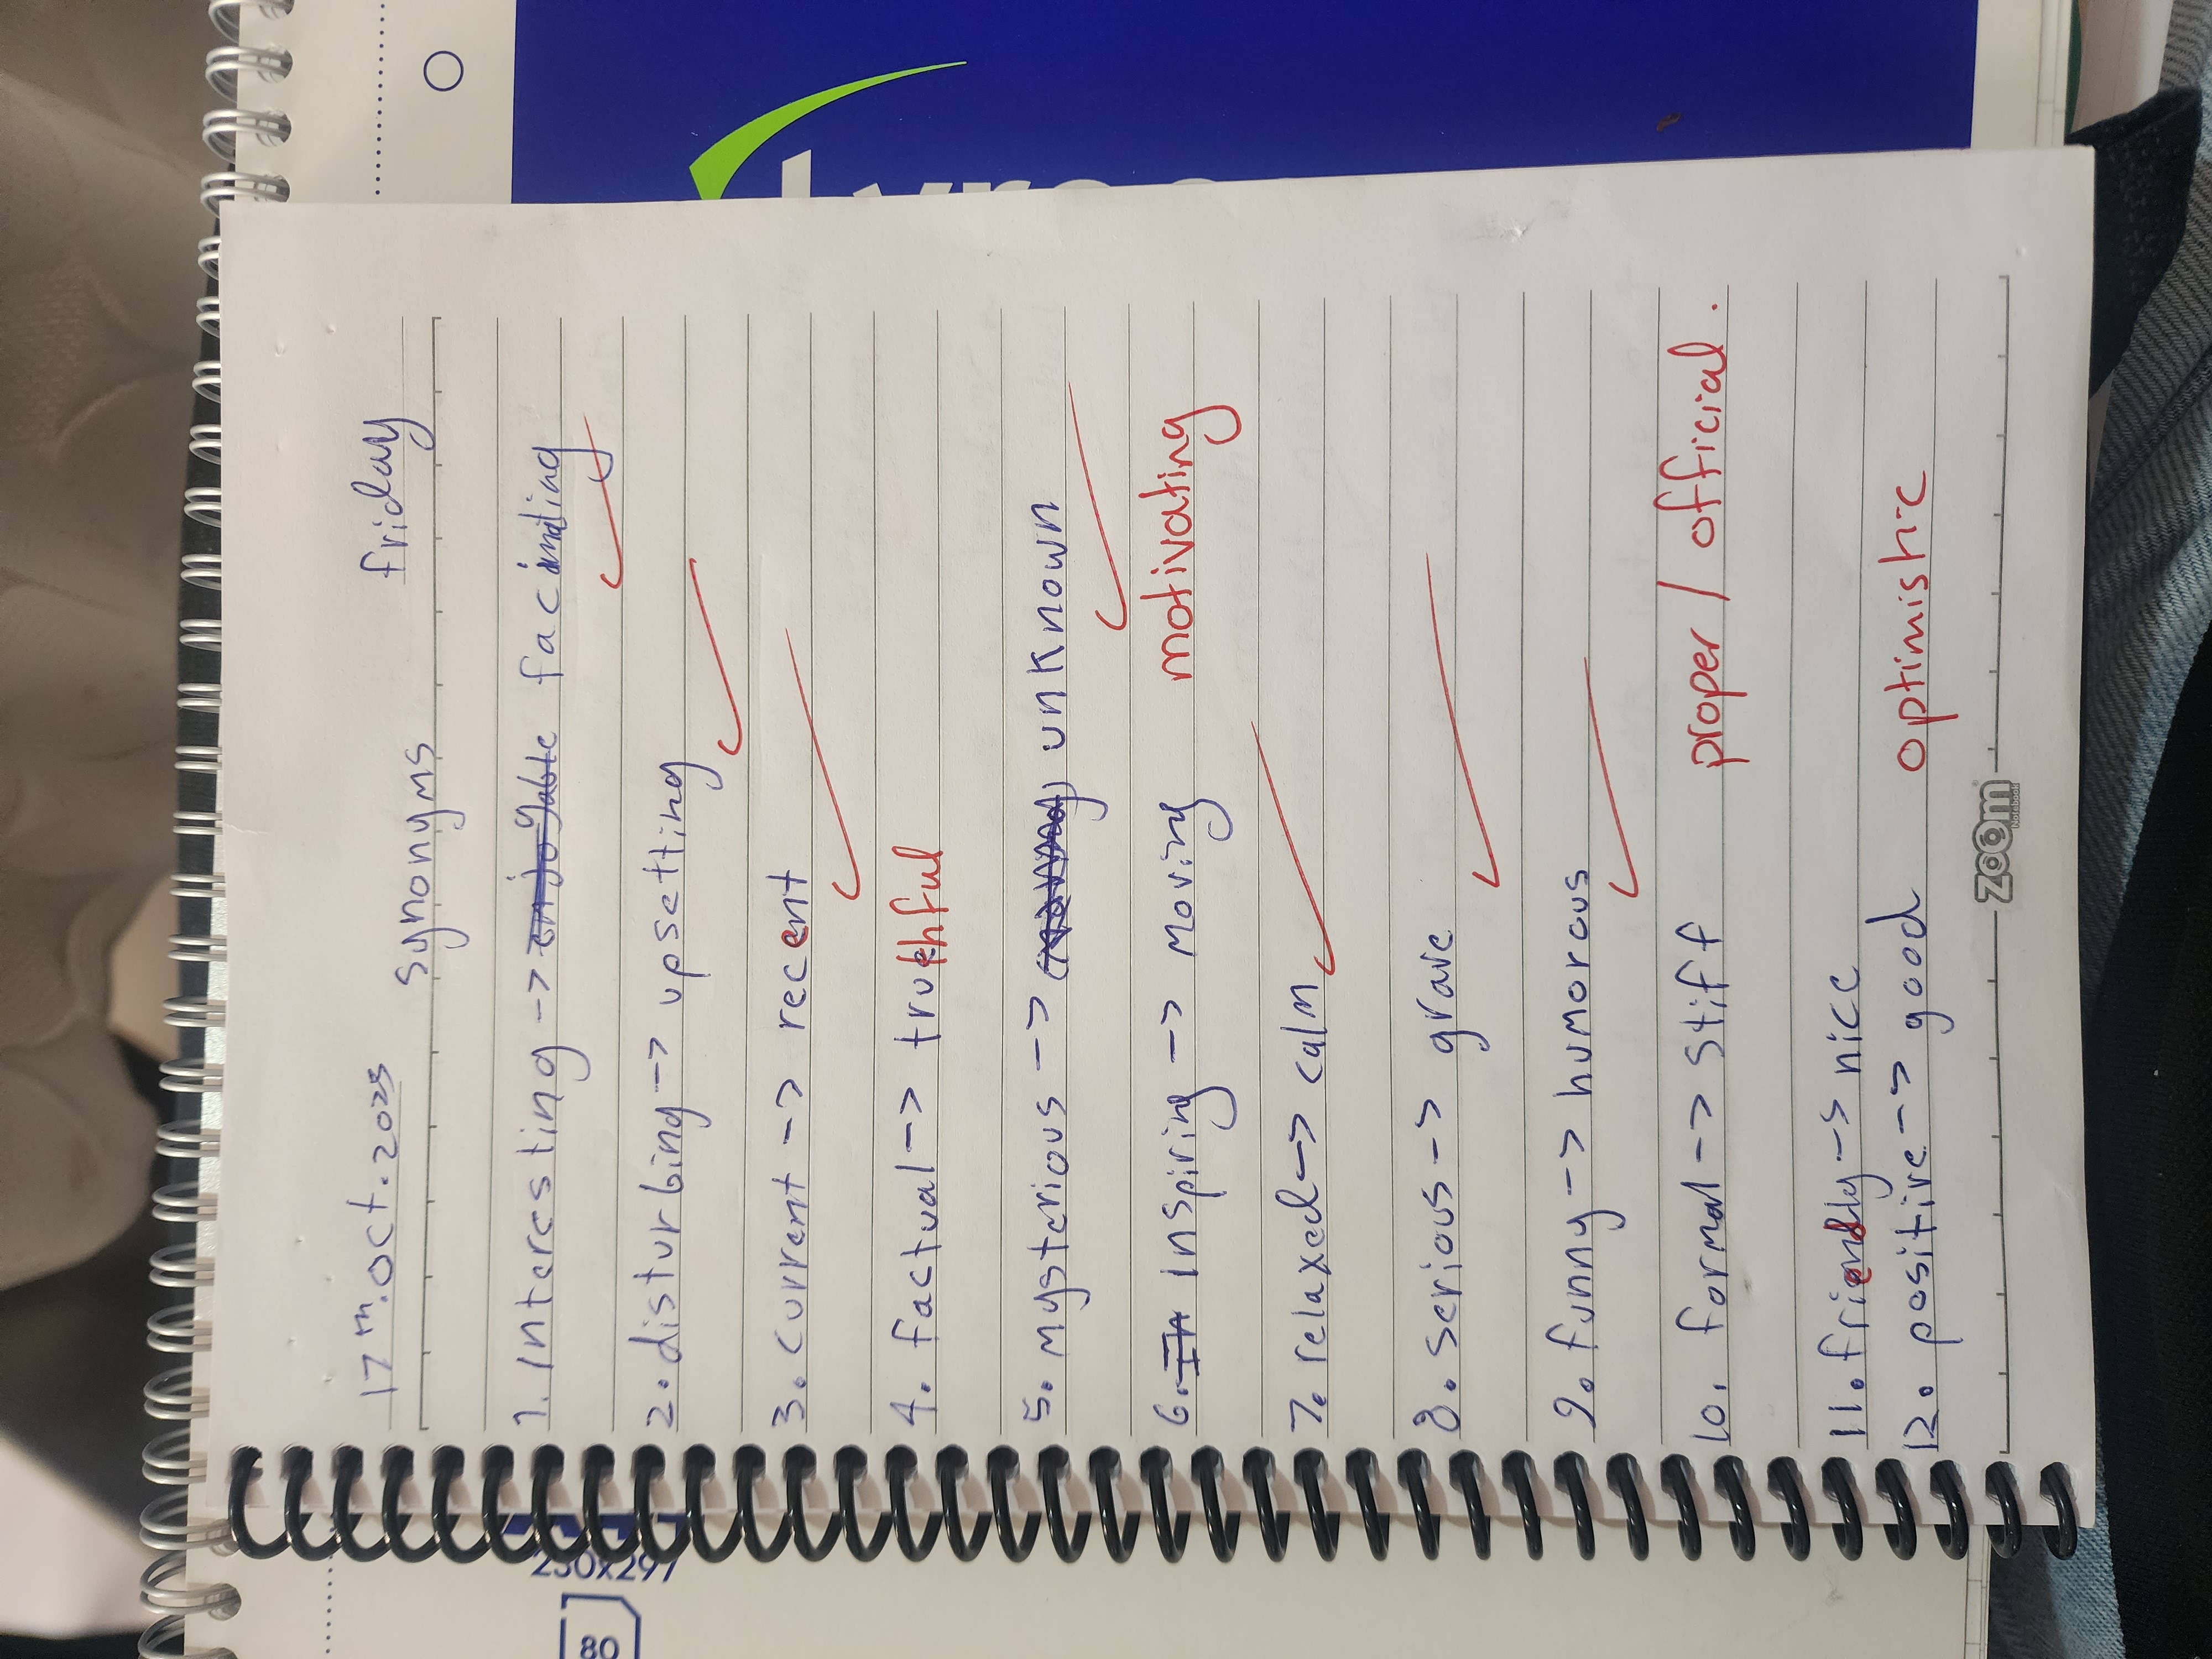 17th.oct.2025 friday
synonyms
1. Interesting -> enjoyable facinating
2. disturbing -> upsetting
3. current -> recent
4. factual -> truthful
5. mysterious -> unknown
6. In Inspiring -> Moving motivating
7. relaxed -> calm
8. serious -> grave
9. funny -> humorous
10. formal -> stiff proper / official.
11. friendly -> nice
12. positive -> good optimistic
zoom
Notebook
230x297
80